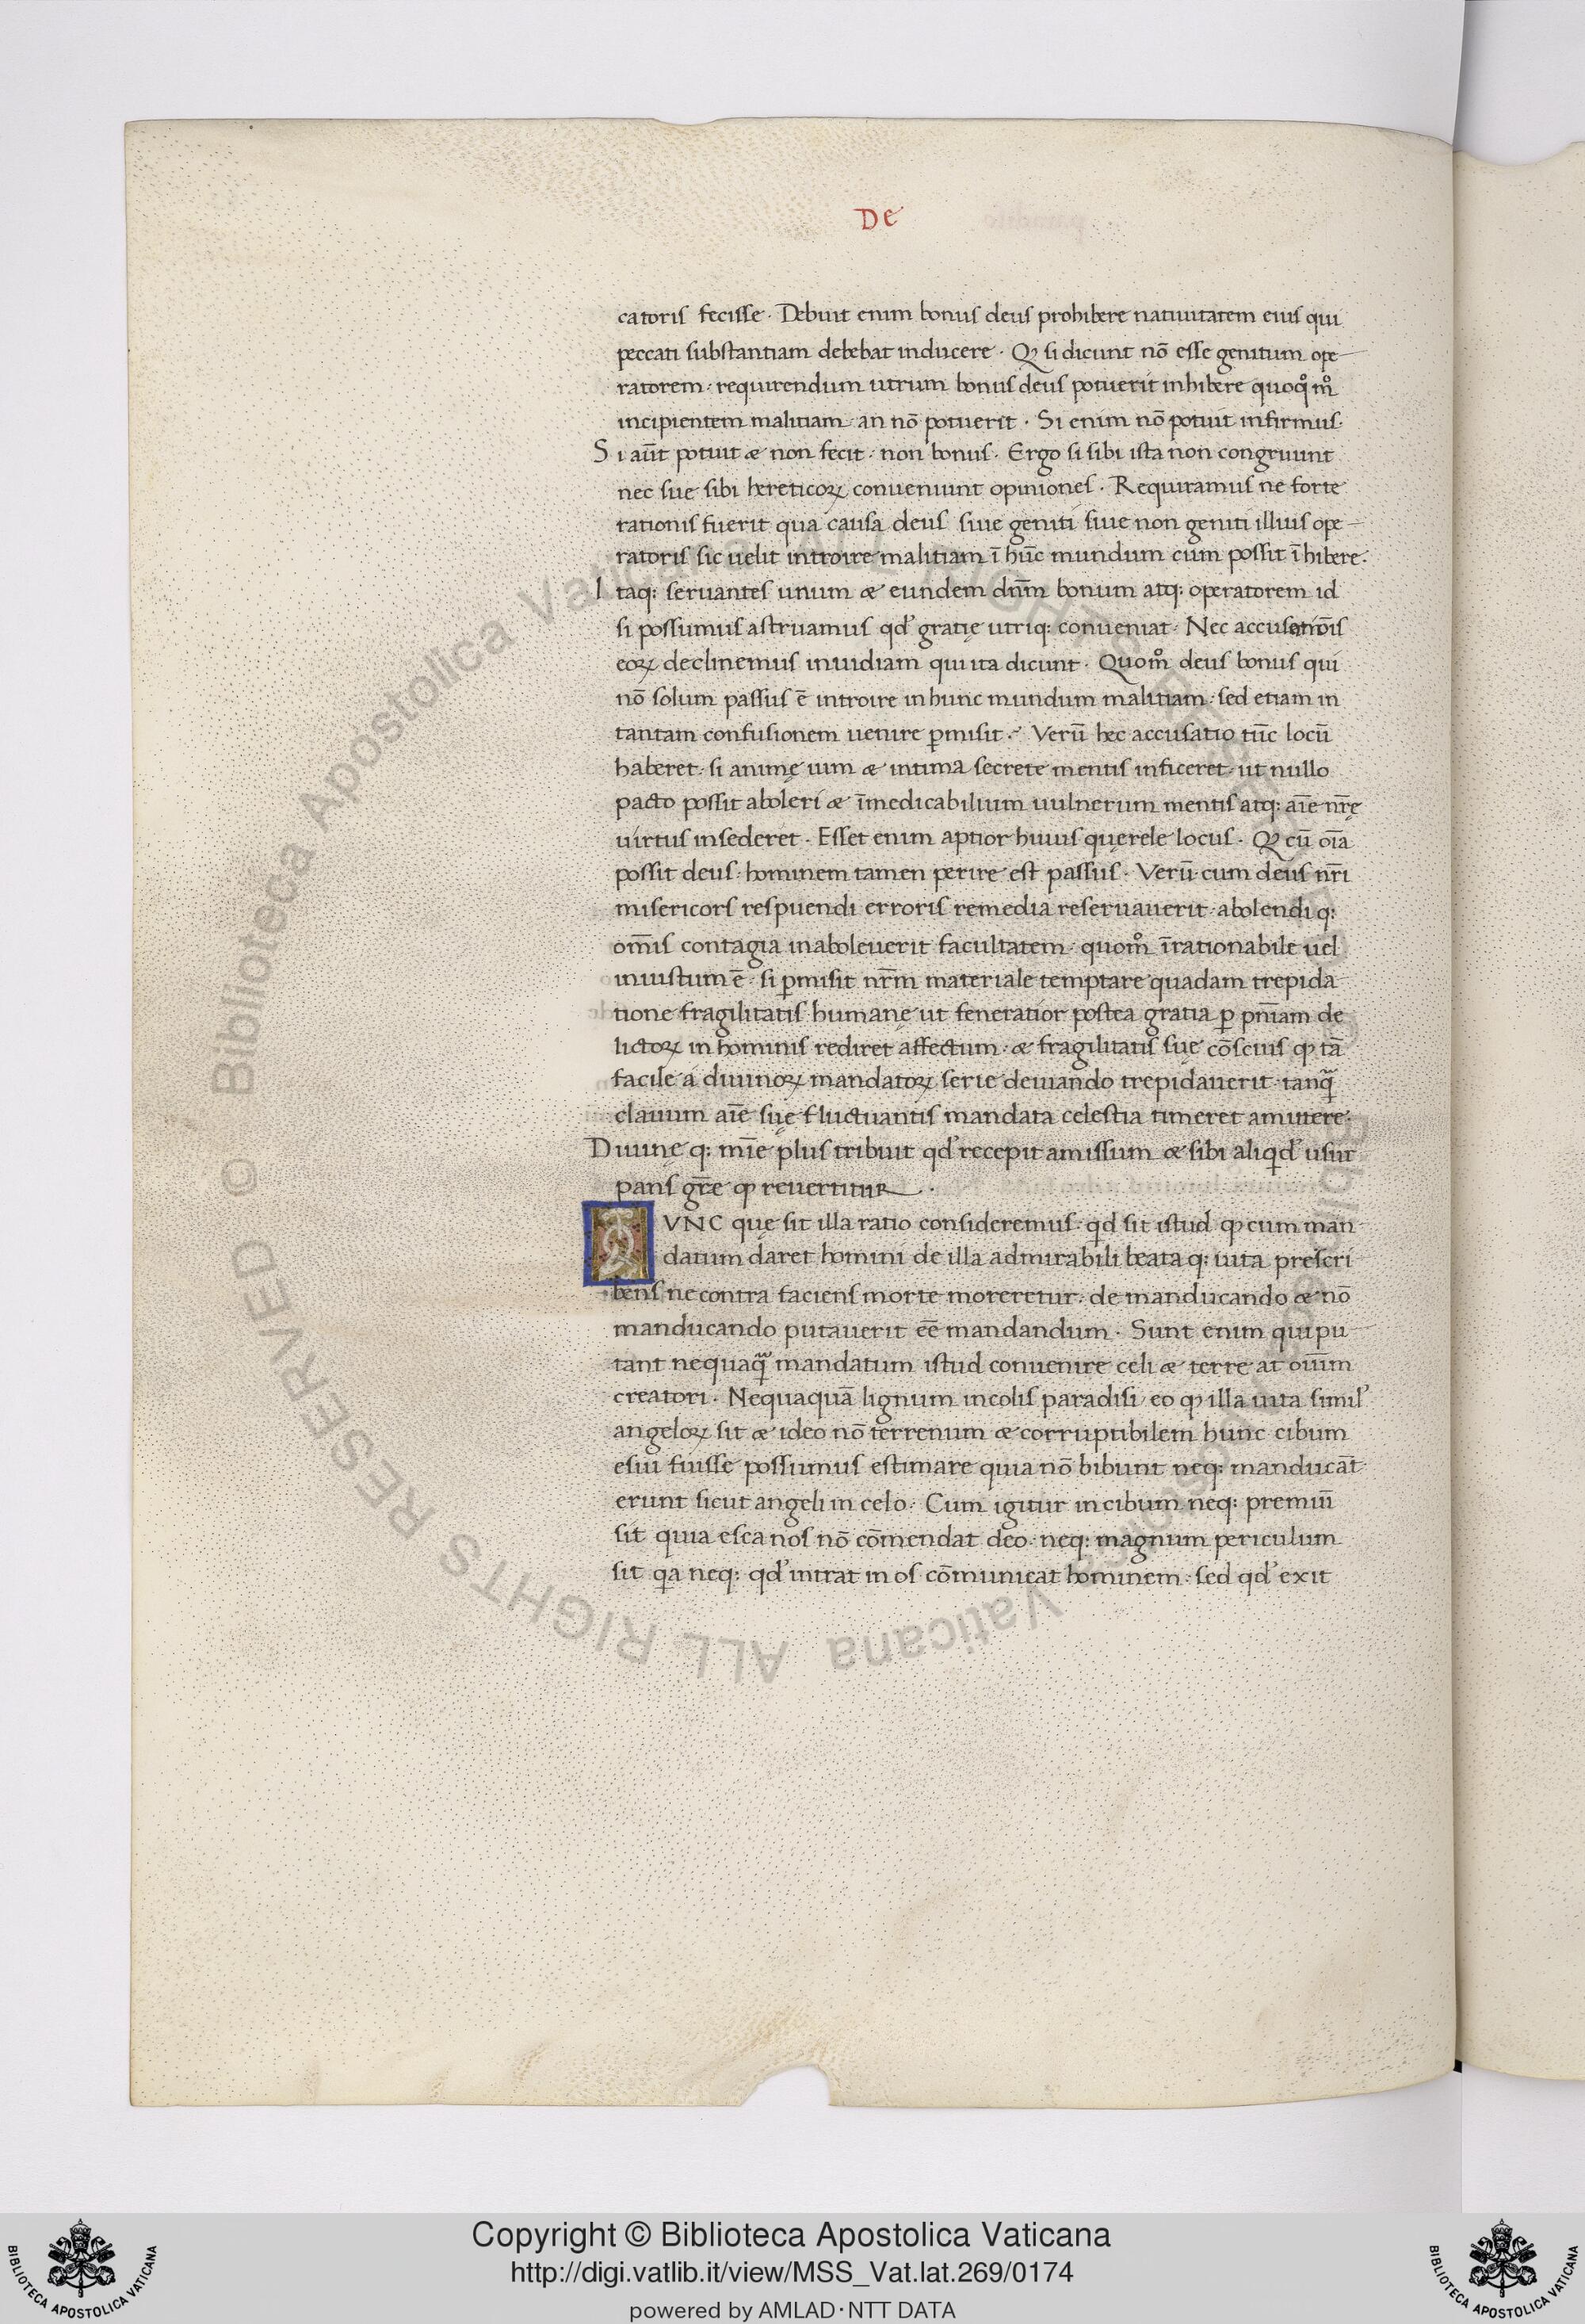 De
catoris fecisse · Debuit enim bonus deus prohibere natiuitatem eius qui
peccati substantiam debebat inducere · Q si dicunt nō esse genitum ope
ratorem · requirendum utrum bonus deus potuerit inhibere quoqͦ mͦ
incipientem malitiam · an nō potuerit · Si enim nō potuit infirmus ·
Si aūt potuit & non fecit · non bonus · Ergo si sibi ista non congruunt
nec sue sibi hereticoꝝ conueniunt opiniones · Requiramus ne forte
rationis fuerit qua causa deus siue geniti siue non geniti illius ope
ratoris sic uelit introire malitiam ī hūc mundum cum possit īhibere ·
Itaq: seruantes unum & eundem dn̄m bonum atq: operatorem id
si possumus astruamus qd' gratię utriq: conueniat · Nec accusationīs
eoꝝ declinemus inuidiam qui ita dicunt · Quomͦ deus bonus qui
nō solum passus ē introire in hunc mundum malitiam · sed etiam in
tantam confusionem uenire ꝑmisit · Verū hec accusatio tūc locū
haberet · si animę uim & intima secrete mentis inficeret · ut nullo
pacto possit aboleri & īmedicabilium uulnerum mentis atq: aīe nr̄ę
uirtus insederet · Esset enim aptior huius quęrele locus · Q cū oīa
possit deus · hominem tamen perire est passus · Verū cum deus nr̄i
misericors respuendi erroris remedia reseruauerit · abolendi q:
om̄is contagia inaboleuerit facultatem · quomͦ īrationabile uel
iniustum ē · si ꝑmisit nr̄m materiale temptare quadam trepida
tione fragilitatis humanę ut feneratior postea gratia ꝑ pn̄iam de
lictoꝝ in hominis rediret affectum · & fragilitatis suę cōscius ꝙ tā
facile a diuinoꝝ mandatoꝝ serie deuiando trepidauerit · tanq̄
clauum aīe suę fluctuantis mandata celestia timeret amittere ·
Diuinę q: mīe plus tribuit qd' recepit amissum & sibi aliqd' usur
pans gr̄e ꝙ reuertitur ·
NVNC quę sit illa ratio consideremus · qd sit istud ꝙ cum man
datum daret homini de illa admirabili beata q: uita prescri
bens ne contra faciens morte moreretur · de manducando & nō
manducando putauerit eē mandandum · Sunt enim qui pu
tant nequaq̄ mandatum istud conuenire celi & terre at oīum
creatori · Nequaquā lignum incolis paradisi eo ꝙ illa uita simil'
angeloꝝ sit & ideo nō terrenum & corruptibilem hunc cibum
esui fuisse possumus estimare quia nō bibunt neq: manducāt
erunt sicut angeli in celo · Cum igitur in cibum neq: premiū
sit quia esca nos nō cōmendat deo · neq: magnum periculum
sit qa neq: qd' intrat in os cōmunicat hominem · sed qd' exit
© Biblioteca Apostolica Vaticana ALL RIGHTS RESERVED © Biblioteca Apostolica Vaticana ALL RIGHTS RESERVED
BIBLIOTECA APOSTOLICA VATICANA
Copyright © Biblioteca Apostolica Vaticana
http://digi.vatlib.it/view/MSS_Vat.lat.269/0174
powered by AMLAD·NTT DATA
BIBLIOTECA APOSTOLICA VATICANA